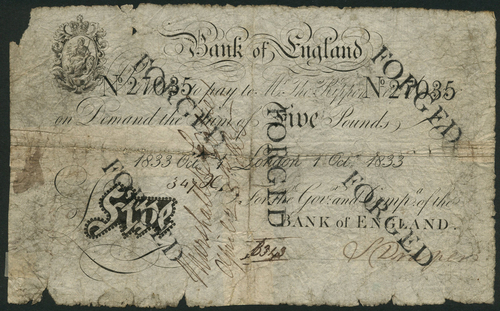 Bank of England
FORGED FORGED
No 27035 to pay to Mr. Tho. Rippon No 27035
on Demand the Sum of Five Pounds
FORGED
1833 Oct 1 London 1 Oct 1833
FORGED FORGED
For the Govr. and Compa. of the
Five
BANK of ENGLAND.